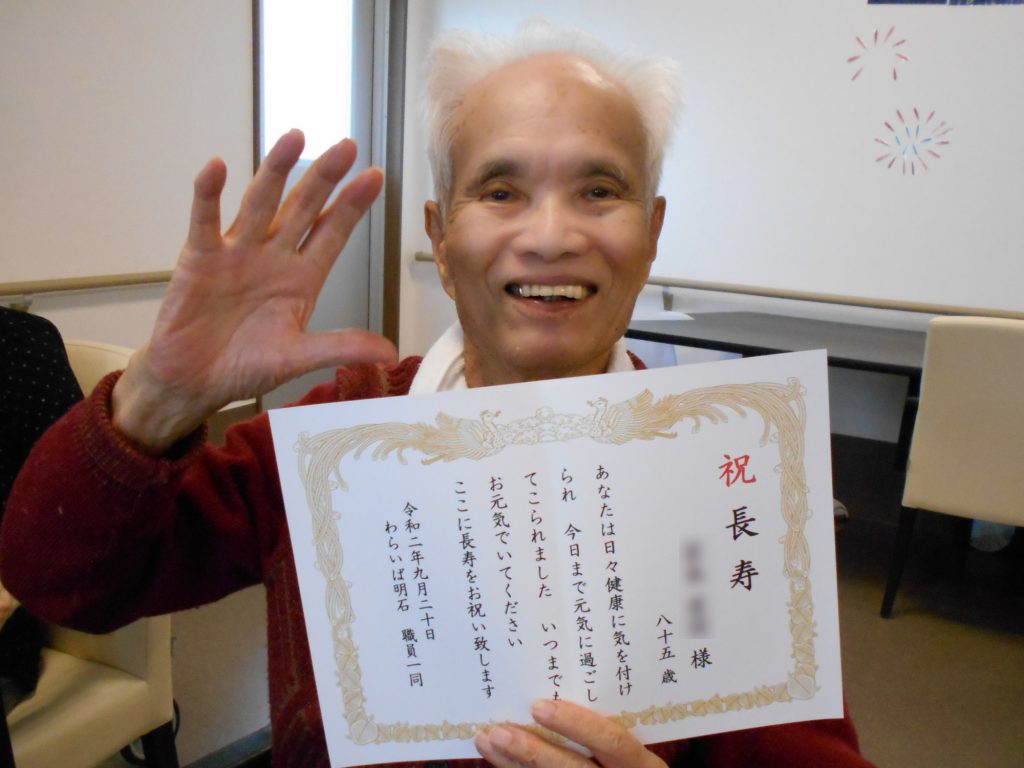 祝 長寿
様
八十五歳
あなたは日々健康に気を付け
られ 今日まで元気に過ごし
てこられました いつまでも
お元気でいてください
ここに長寿をお祝い致します
令和二年九月二十日
わらいば明石 職員一同